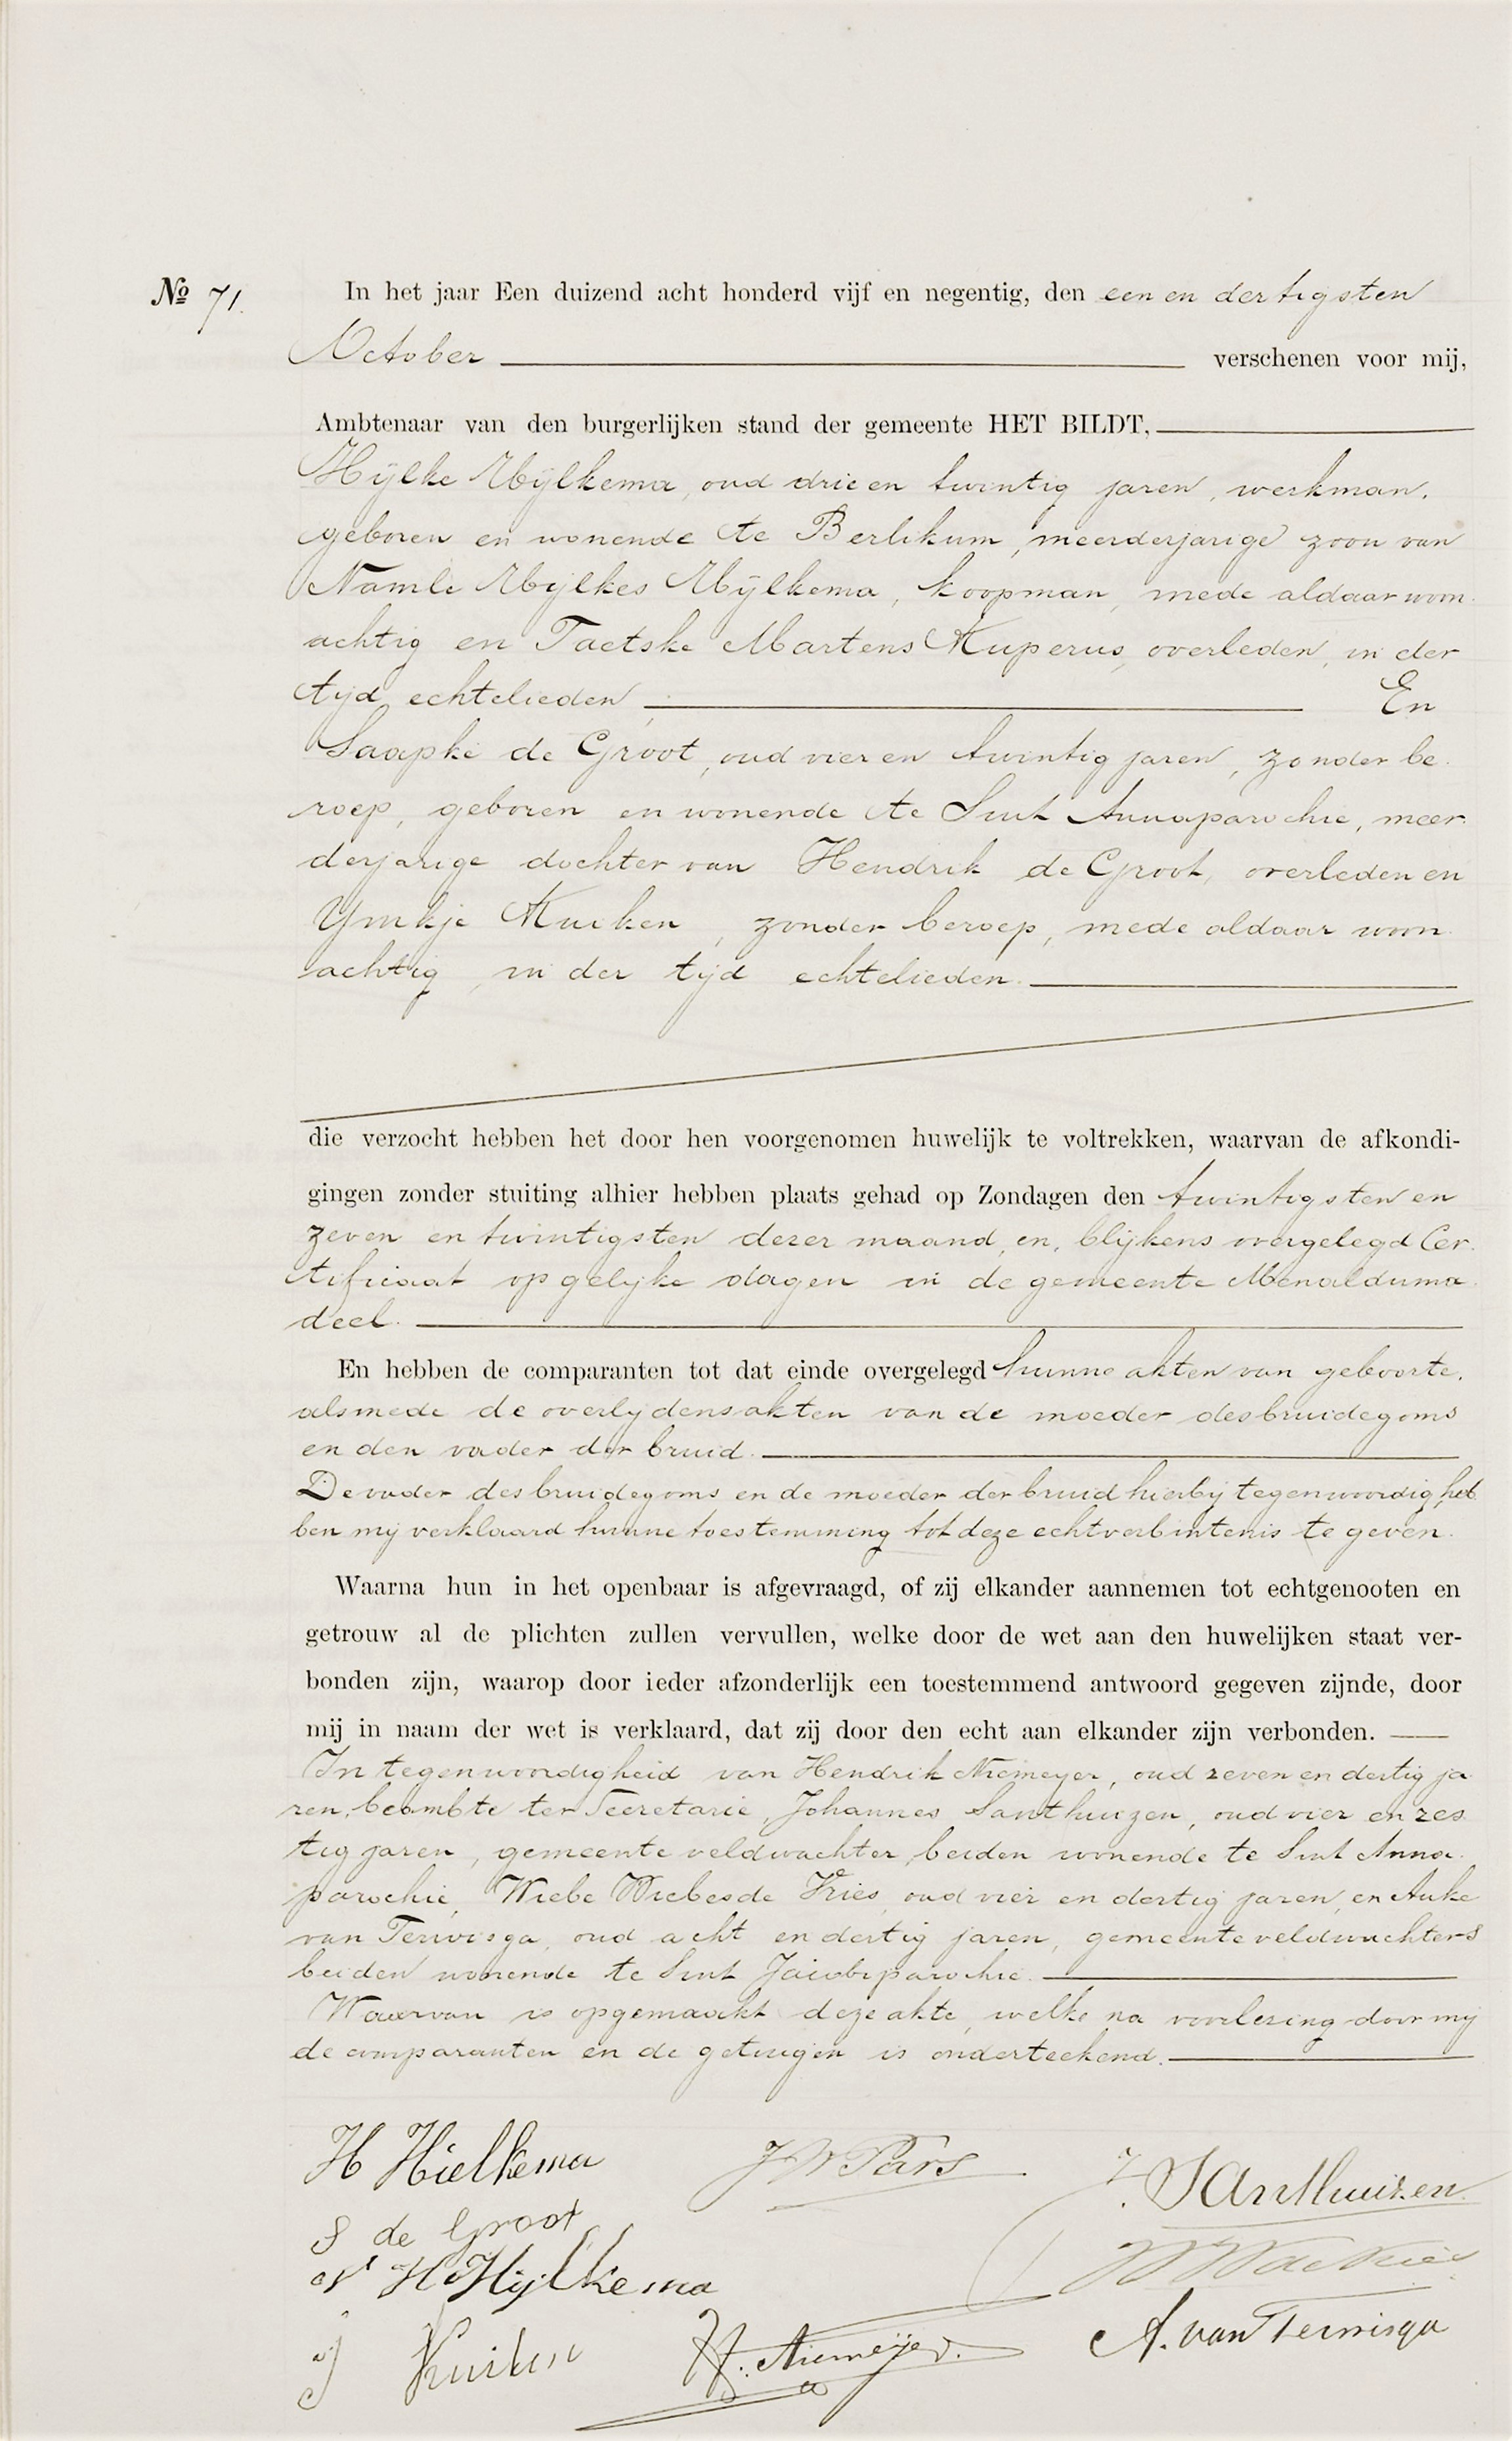 No 71. In het jaar Een duizend acht honderd vijf en negentig, den een en dertigsten
October verschenen voor mij,
Ambtenaar van den burgerlijken stand der gemeente HET BILDT,
Hijlke Hijlkema, oud drie en twintig jaren, werkman,
geboren en wonende te Berlikum, meerderjarige zoon van
Namle Hijlkes Hijlkema, koopman, mede aldaar woon
achtig en Taetske Martens Kuperus, overleden, in der
tijd echtelieden, En
Saapke de Groot, oud vier en twintig jaren, zonder be
roep, geboren en wonende te Sint Annaparochie, meer
derjarige dochter van Hendrik de Groot, overleden en
Ymkje Kuiken, zonder beroep, mede aldaar woon
achtig, in der tijd echtelieden.
die verzocht hebben het door hen voorgenomen huwelijk te voltrekken, waarvan de afkondi-
gingen zonder stuiting alhier hebben plaats gehad op Zondagen den twintigsten en
zeven en twintigsten dezer maand, en, blijkens overgelegd Cer
tificaat op gelijke dagen in de gemeente Menalduma
deel.
En hebben de comparanten tot dat einde overgelegd hunne akten van geboorte,
alsmede de overlijdensakten van de moeder des bruidegoms
en den vader der bruid.
De vader des bruidegoms en de moeder der bruid hierbij tegenwoordig, heb
ben mij verklaard hunne toestemming tot deze echtverbintenis te geven.
Waarna hun in het openbaar is afgevraagd, of zij elkander aannemen tot echtgenooten en
getrouw al de plichten zullen vervullen, welke door de wet aan den huwelijken staat ver-
bonden zijn, waarop door ieder afzonderlijk een toestemmend antwoord gegeven zijnde, door
mij in naam der wet is verklaard, dat zij door den echt aan elkander zijn verbonden.
In tegenwoordigheid van Hendrik Niemeyer, oud zeven en dertig ja
ren, beambte ter Secretarie, Johannes Santhuizen, oud vier en zes
tig jaren, gemeente veldwachter, beiden wonende te Sint Anna
parochie, Wiebe Wiebes de Vries, oud vier en dertig jaren, en Auke
van Terwisga, oud acht en dertig jaren, gemeente veldwachters
beiden wonende te Sint Jacobiparochie.
Waarvan is opgemaakt deze akte, welke na voorlezing door mij
de comparanten en de getuigen is onderteekend.
H Hielkema
JW Pars
J. Santhuizen
S de Groot
W W de Vries
N H Hijlkema
A. van Terwisga
IJ Kuiken
H. Niemeijer.